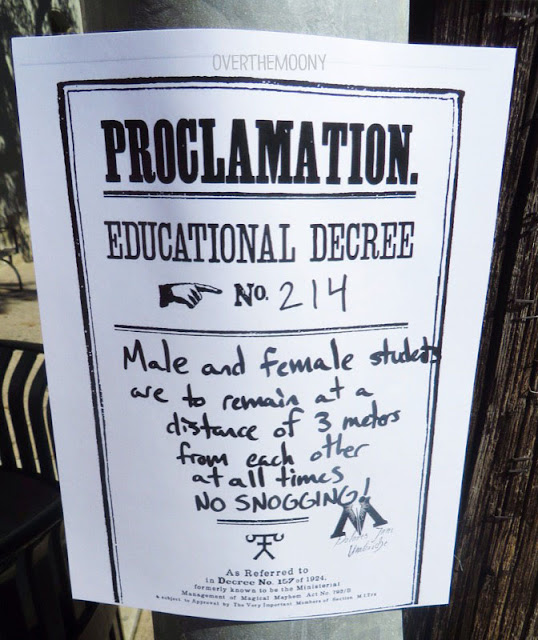 OVERTHEMOONY
PROCLAMATION.
EDUCATIONAL DECREE
No. 214
Male and female students
are to remain at a
distance of 3 meters
from each other
at all times
NO SNOGGING!
M
Dolores Jane
Umbridge
As Referred to
in Decree No. 157 of 1924,
formerly known to be the Ministerial
Management of Magical Mayhem Act No. 792/B.
a subject to Approval by The Very Important Members of Section M.I.7ra